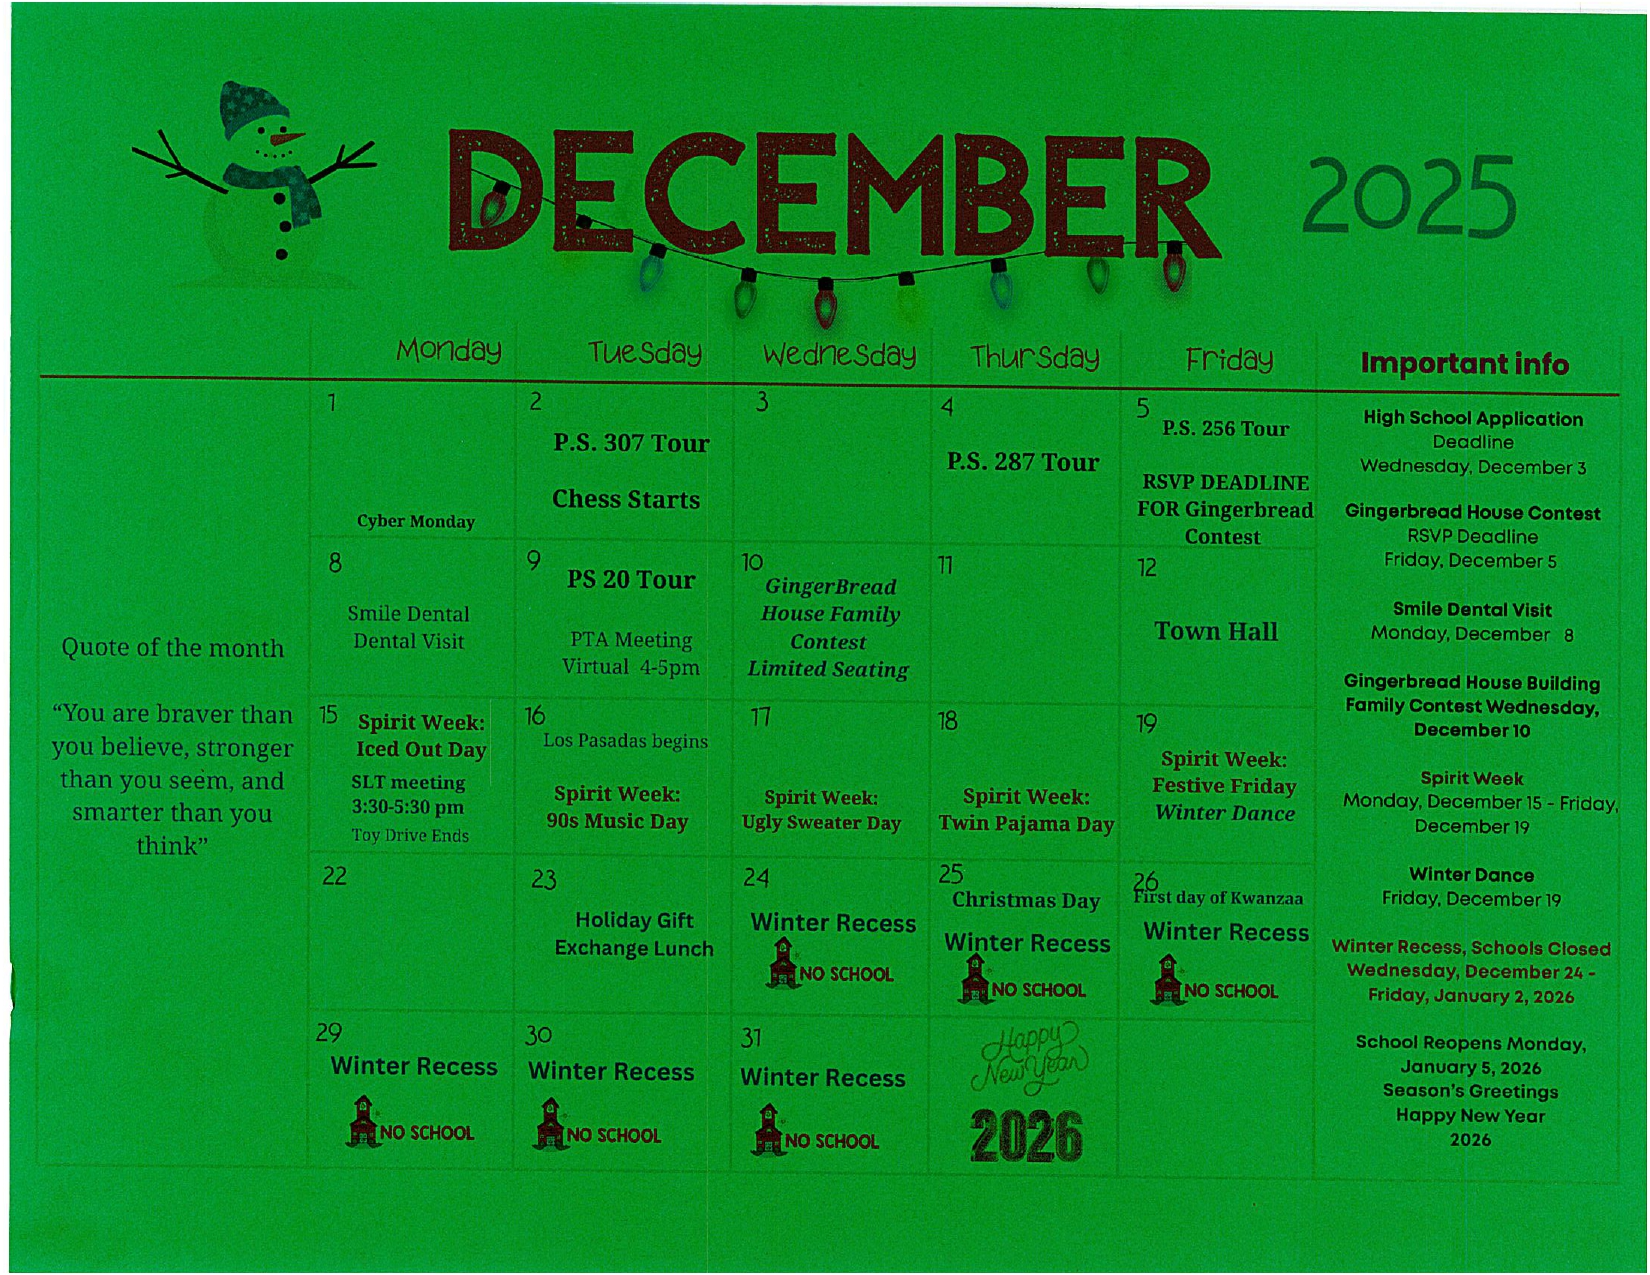 DECEMBER
2025
Monday
Tuesday
Wednesday
Thursday
Friday
Important info
Quote of the month
“You are braver than
you believe, stronger
than you seem, and
smarter than you
think”
1
Cyber Monday
2
P.S. 307 Tour
Chess Starts
3
4
P.S. 287 Tour
5
P.S. 256 Tour
RSVP DEADLINE
FOR Gingerbread
Contest
8
Smile Dental
Dental Visit
9
PS 20 Tour
PTA Meeting
Virtual 4-5pm
10
GingerBread
House Family
Contest
Limited Seating
11
12
Town Hall
15
Spirit Week:
Iced Out Day
SLT meeting
3:30-5:30 pm
Toy Drive Ends
16
Los Pasadas begins
Spirit Week:
90s Music Day
17
Spirit Week:
Ugly Sweater Day
18
Spirit Week:
Twin Pajama Day
19
Spirit Week:
Festive Friday
Winter Dance
22
23
Holiday Gift
Exchange Lunch
24
Winter Recess
NO SCHOOL
25
Christmas Day
Winter Recess
NO SCHOOL
26
First day of Kwanzaa
Winter Recess
NO SCHOOL
29
Winter Recess
NO SCHOOL
30
Winter Recess
NO SCHOOL
31
Winter Recess
NO SCHOOL
Happy
New Year
2026
High School Application
Deadline
Wednesday, December 3
Gingerbread House Contest
RSVP Deadline
Friday, December 5
Smile Dental Visit
Monday, December 8
Gingerbread House Building
Family Contest Wednesday,
December 10
Spirit Week
Monday, December 15 - Friday,
December 19
Winter Dance
Friday, December 19
Winter Recess, Schools Closed
Wednesday, December 24 -
Friday, January 2, 2026
School Reopens Monday,
January 5, 2026
Season's Greetings
Happy New Year
2026